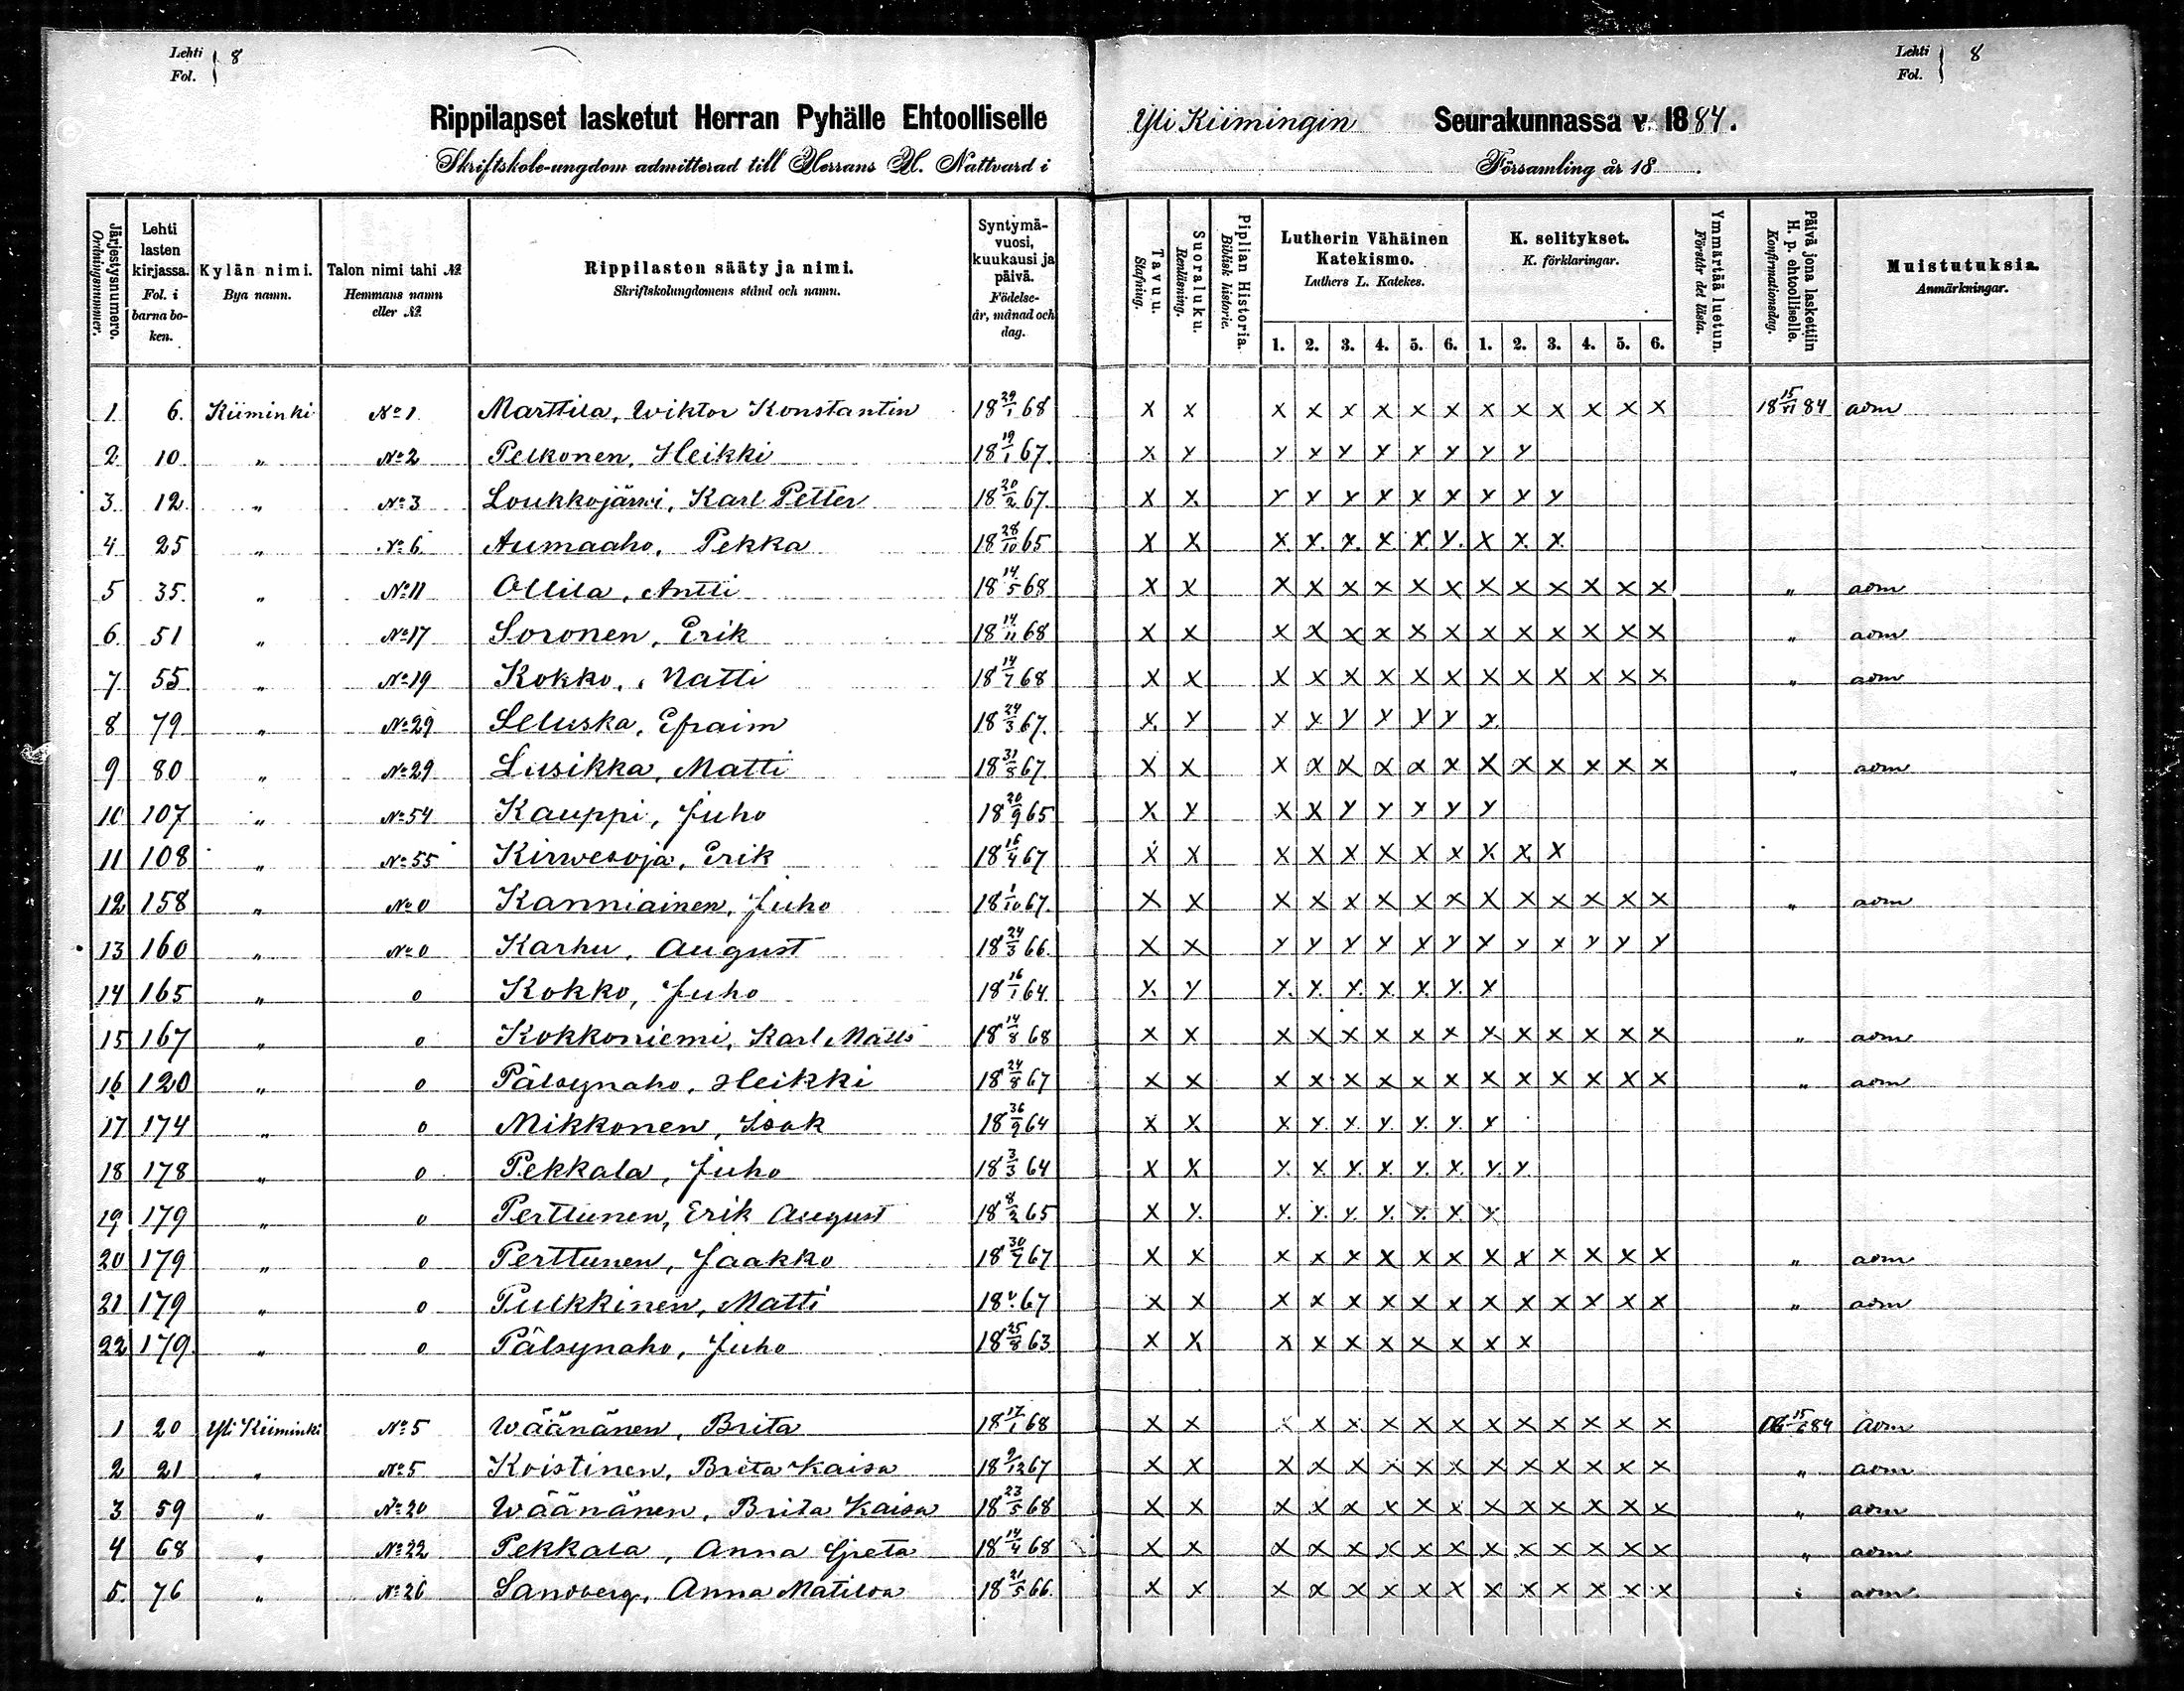 Lehti Fol. } 8
Lehti Fol. } 8
Rippilapset lasketut Herran Pyhälle Ehtoolliselle Yli Kiimingin Seurakunnassa v. 1884.
Skriftskole-ungdom admitterad till Herrans H. Nattvard i Församling år 18 .
Järjestysnumero. Ordningsnummer.
Lehti lasten kirjassa. Fol. i barnaboken.
Kylän nimi. Bya namn.
Talon nimi tahi № Hemmans namn eller №
Rippilasten sääty ja nimi. Skriftskolungdomens stånd och namn.
Syntymävuosi, kuukausi ja päivä. Födelseår, månad och dag.
Tavuu. Stafning.
Suoraluku. Renläsning.
Piplian Historia. Biblisk historie.
Lutherin Vähäinen Katekismo. Luthers L. Katekes. 1. 2. 3. 4. 5. 6.
K. selitykset. K. förklaringar. 1. 2. 3. 4. 5. 6.
Ymmärtää luetun. Förstår det lästa.
Päivä jona laskettiin H. p. ehtoolliselle. Konfirmationsdag.
Muistutuksia. Anmärkningar.
1 6. Kiiminki №1 Marttila, Wiktor Konstantin 18 29/1 68 x x x x x x x x x x x x x x 18 15/VI 84 adm
2 10 " №2 Pelkonen, Heikki 18 19/1 67. x x x x x x x x x x
3. 12 " №3 Loukkojärwi, Karl Petter 18 20/2 67. x x x x x x x x x x x
4 25 " №6 Aumaaho, Pekka 18 28/10 65 x x x x x x x x x x x
5 35. " №11 Ollila, Antti 18 14/5 68 x x x x x x x x x x x x x x " adm
6. 51 " №17 Soronen, Erik 18 14/11 68 x x x x x x x x x x x x x x " adm
7 55 " №19 Kokko, Matti 18 14/7 68 x x x x x x x x x x x x x x " adm
8 79 " №29 Seluska, Efraim 18 24/3 67. x x x x x x x x x
9 80 " №29 Lusikka, Matti 18 31/8 67 x x x x x x x x x x x x x x " adm
10 107 " №54 Kauppi, Juho 18 20/9 65 x x x x x x x x x
11 108 " №55 Kirwesoja, Erik 18 16/4 67 x x x x x x x x x x x
12 158 " №0 Kanniainen, Juho 18 1/10 67. x x x x x x x x x x x x x x " adm
13 160 " №0 Karhu, August 18 24/3 66 x x x x x x x x x x x x x x
14 165 " 0 Kokko, Juho 18 16/1 64 x x x x x x x x x
15 167 " 0 Kokkoniemi, Karl Matts 18 14/8 68 x x x x x x x x x x x x x x " adm
16 120 " 0 Pälsynaho, Heikki 18 24/8 67 x x x x x x x x x x x x x x " adm
17 174 " 0 Mikkonen, Isak 18 36/9 64 x x x x x x x x x
18 178 " 0 Pekkala, Juho 18 3/3 64 x x x x x x x x x x
19 179 " 0 Perttunen, Erik August 18 8/2 65 x x x x x x x x x
20 179 " 0 Perttunen, Jaakko 18 30/7 67 x x x x x x x x x x x x x x " adm
21 179 " 0 Pulkkinen, Matti 18 67 x x x x x x x x x x x x x x " adm
22 179 " 0 Pälsynaho, Juho 18 25/8 63 x x x x x x x x x x
1 20 Yli Kiiminki №5 Wäänänen, Brita 18 17/1 68 x x x x x x x x x x x x x x 15/6 84 adm
2 21 " №5 Koistinen, Brita Kaisa 18 9/12 67 x x x x x x x x x x x x x x " adm
3 59 " №20 Wäänänen, Brita Kaisa 18 23/5 68 x x x x x x x x x x x x x x " adm
4 68 " №22 Pekkala, Anna Greta 18 14/4 68 x x x x x x x x x x x x x x " adm
5. 76 " №26 Sandberg, Anna Matilda 18 21/5 66. x x x x x x x x x x x x x x " adm